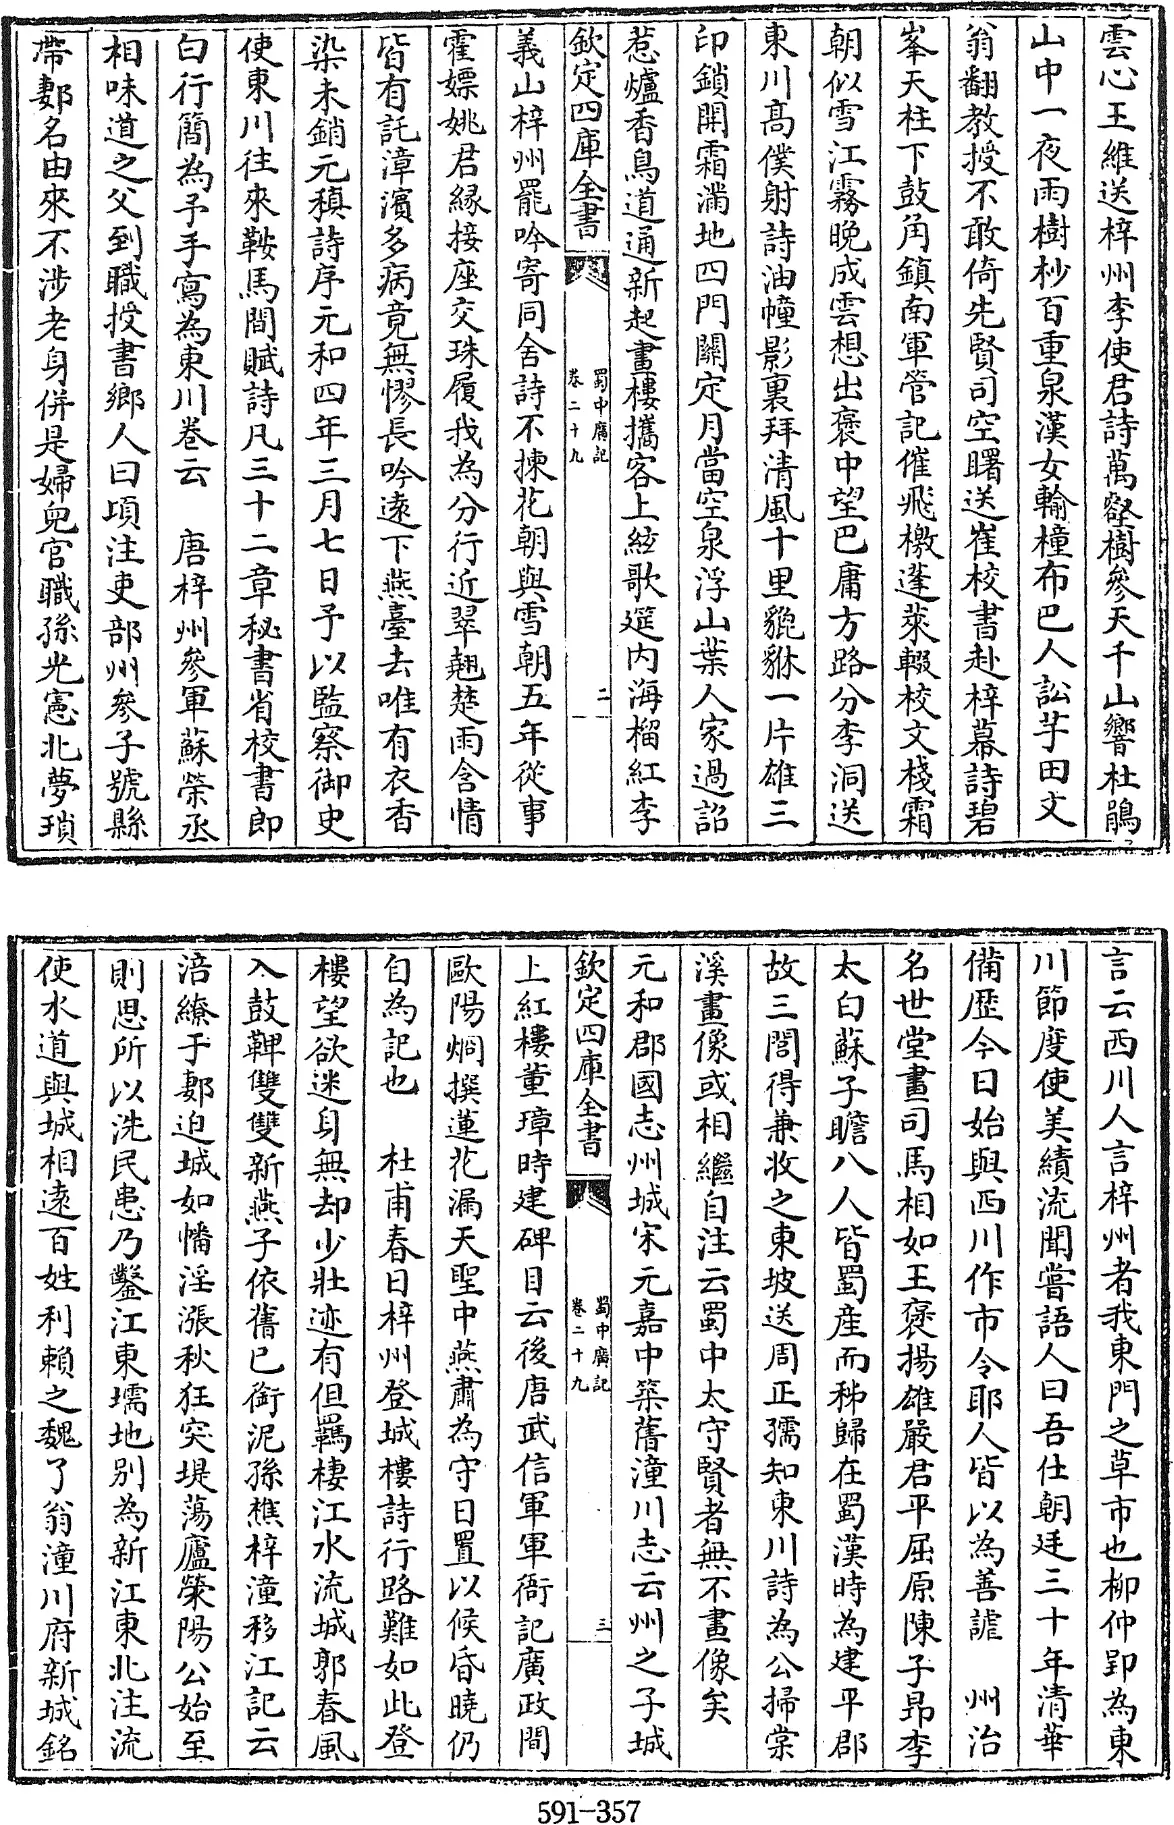 雲心王維送梓州李使君詩萬壑樹參天千山響杜鵑
山中一夜雨樹杪百重泉漢女輸橦布巴人訟芋田文
翁翻教授不敢倚先賢司空曙送崔校書赴梓幕詩碧
峯天柱下鼓角鎮南軍管記催飛檄蓬萊輟校文棧霜
朝似雪江霧晚成雲想出褒中望巴庸方路分李洞送
東川高僕射詩油幢影裏拜清風十里貔貅一片雄三
印鎖開霜滿地四門關定月當空泉浮山葉人家過詔
惹爐香鳥道通新起畫樓攜客上絃歌筵内海榴紅李
欽定四庫全書
蜀中廣記
卷二十九
二
義山梓州罷吟寄同舍詩不揀花朝與雪朝五年從事
霍嫖姚君縁接座交珠履我為分行近翠翹楚雨含情
皆有託漳濱多病竟無憀長吟遠下燕臺去唯有衣香
染未銷元稹詩序元和四年三月七日予以監察御史
使東川往來鞍馬間賦詩凡三十二章秘書省校書郎
白行簡為予手寫為東川卷云　唐梓州參軍蘇榮丞
相味道之父到職授書鄉人曰項注吏部州參子號縣
帶郪名由來不涉老身併是婦兒官職孫光憲北夢瑣
言云西川人言梓州者我東門之草市也柳仲郢為東
川節度使美績流聞嘗語人曰吾仕朝廷三十年清華
備歷今日始與西川作市令耶人皆以為善謔　州治
名世堂畫司馬相如王褒揚雄嚴君平屈原陳子昻李
太白蘇子瞻八人皆蜀産而秭歸在蜀漢時為建平郡
故三閭得兼收之東坡送周正孺知東川詩為公掃棠
溪畫像或相繼自注云蜀中太守賢者無不畫像矣
元和郡國志州城宋元嘉中築舊潼川志云州之子城
欽定四庫全書
蜀中廣記
卷二十九
三
上紅樓董璋時建碑目云後唐武信軍軍衙記廣政間
歐陽烱撰蓮花漏天聖中燕肅為守日置以候昏曉仍
自為記也　杜甫春日梓州登城樓詩行路難如此登
樓望欲迷身無却少壯迹有但羈棲江水流城郭春風
入鼓鞞雙雙新燕子依舊已銜泥孫樵梓潼移江記云
涪繚于郪迫城如幡淫漲秋狂突堤蕩廬滎陽公始至
則思所以洗民患乃鑿江東壖地别為新江東北注流
使水道與城相遠百姓利賴之魏了翁潼川府新城銘
591-357